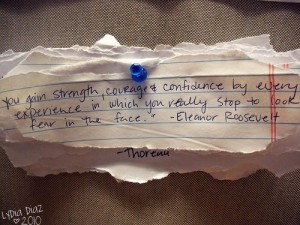 you gain strength, courage & confidence by every
experience in which you really stop to look
fear in the face." -Eleanor Roosevelt
-Thoreau
Lydia Diaz
♡ 2010